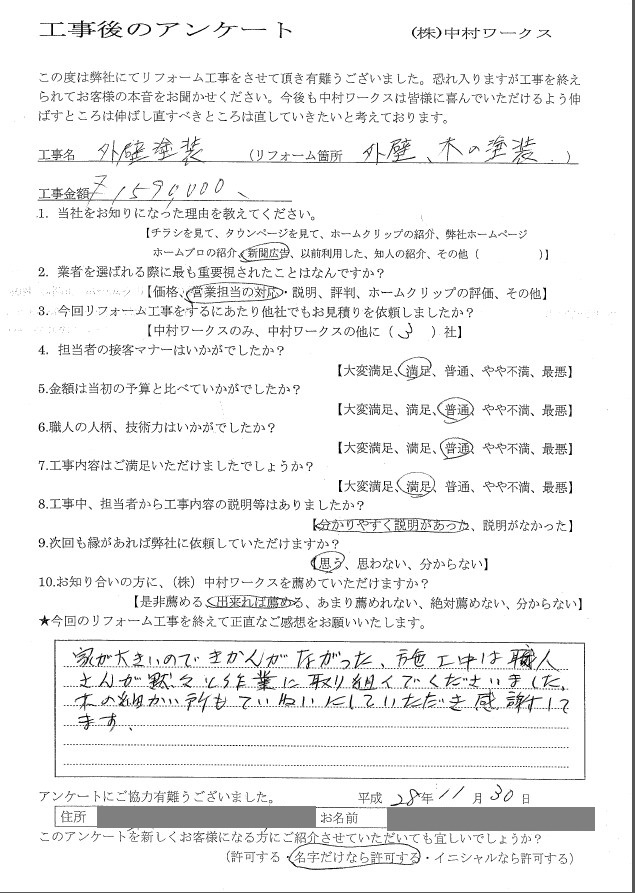 工事後のアンケート (株)中村ワークス
この度は弊社にてリフォーム工事をさせて頂き有難うございました。恐れ入りますが工事を終え
られてお客様の本音をお聞かせください。今後も中村ワークスは皆様に喜んでいただけるよう伸
ばすところは伸ばし直すべきところは直していきたいと考えております。
工事名 外壁塗装 (リフォーム箇所 外壁、木の塗装.)
工事金額 ¥1590,000、
1. 当社をお知りになった理由を教えてください。
【チラシを見て、タウンページを見て、ホームクリップの紹介、弊社ホームページ
ホームプロの紹介、新聞広告、以前利用した、知人の紹介、その他( )】
2. 業者を選ばれる際に最も重要視されたことはなんですか?
【価格、営業担当の対応・説明、評判、ホームクリップの評価、その他】
3. 今回リフォーム工事をするにあたり他社でもお見積りを依頼しましたか?
【中村ワークスのみ、中村ワークスの他に( 3 )社】
4. 担当者の接客マナーはいかがでしたか?
【大変満足、満足、普通、やや不満、最悪】
5.金額は当初の予算と比べていかがでしたか?
【大変満足、満足、普通、やや不満、最悪】
6.職人の人柄、技術力はいかがでしたか?
【大変満足、満足、普通、やや不満、最悪】
7.工事内容はご満足いただけましたでしょうか?
【大変満足、満足、普通、やや不満、最悪】
8.工事中、担当者から工事内容の説明等はありましたか?
【分かりやすく説明があった、説明がなかった】
9.次回も縁があれば弊社に依頼していただけますか?
【思う、思わない、分からない】
10.お知り合いの方に、(株)中村ワークスを薦めていただけますか?
【是非薦める、出来れば薦める、あまり薦めれない、絶対薦めない、分からない】
★今回のリフォーム工事を終えて正直なご感想をお願いいたします。
家が大きいのできかんがながかった、施工中は職人
さんが黙々と作業に取り組くでくださいました。
木の細かい所もていねいにしていただき感謝して
ます.
アンケートにご協力有難うございました。 平成 28年 11月 30日
住所 お名前
このアンケートを新しくお客様になる方にご紹介させていただいても宜しいでしょうか?
(許可する・名字だけなら許可する・イニシャルなら許可する)